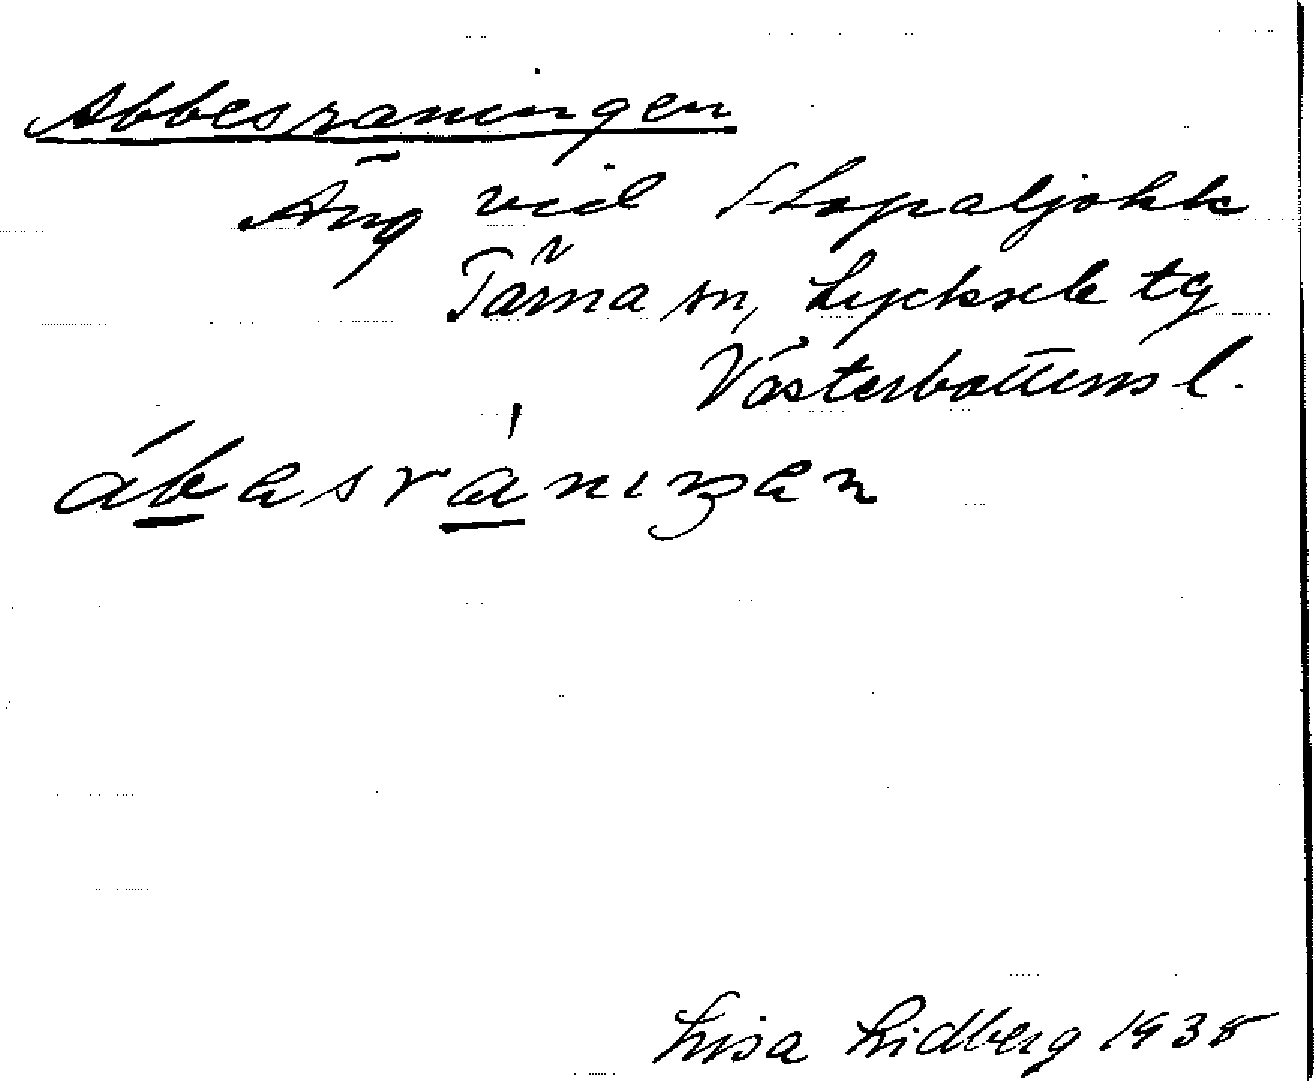 Abbesraningen
Äng vid Skapaljokk
Tärna sn, Lycksele tg
Västerbottens l.
ábesrániŋen
Lisa Lidberg 1938